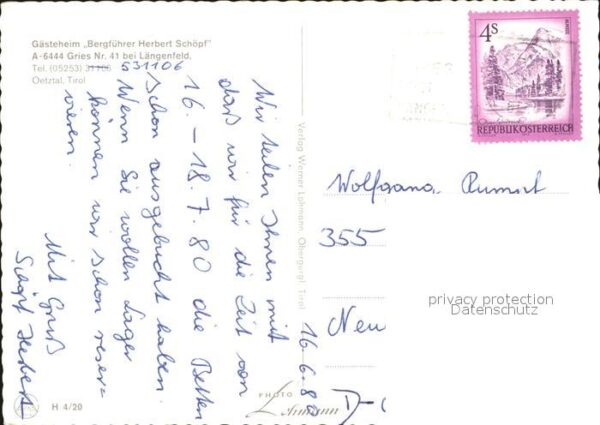 Gästeheim „Bergführer Herbert Schöpf"
A-6444 Gries Nr. 41 bei Längenfeld,
Tel. (05253) 531106
Oetztal, Tirol
Wir teilen Ihnen mit
daß wir für die Zeit von
16. – 18.7.80 die Betten
schon ausgebucht haben.
Wenn Sie wollen Lager
können wir schon reser=
vieren.
Mit Gruß
Schöpf Herbert
16.6.80
H 4/20
Verlag Werner Lohmann, Obergurgl, Tirol
PHOTO
Lohmann
4S
REPUBLIK ÖSTERREICH
Wolfgang
355
Neu
D-
privacy protection
Datenschutz